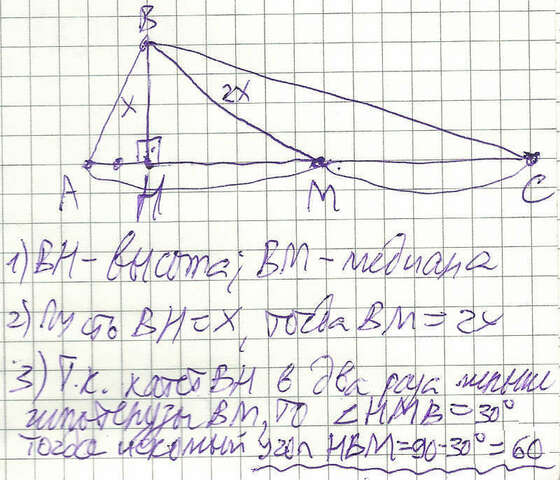 B
x
2x
A
H
M
C
1) BH - высота; BM - медиана
2) Пусть BH = x, тогда BM = 2x
3) Т.к. катет BH в два раза меньше
гипотенузы BM, то ∠HMB = 30°
тогда искомый угол HBM = 90-30° = 60